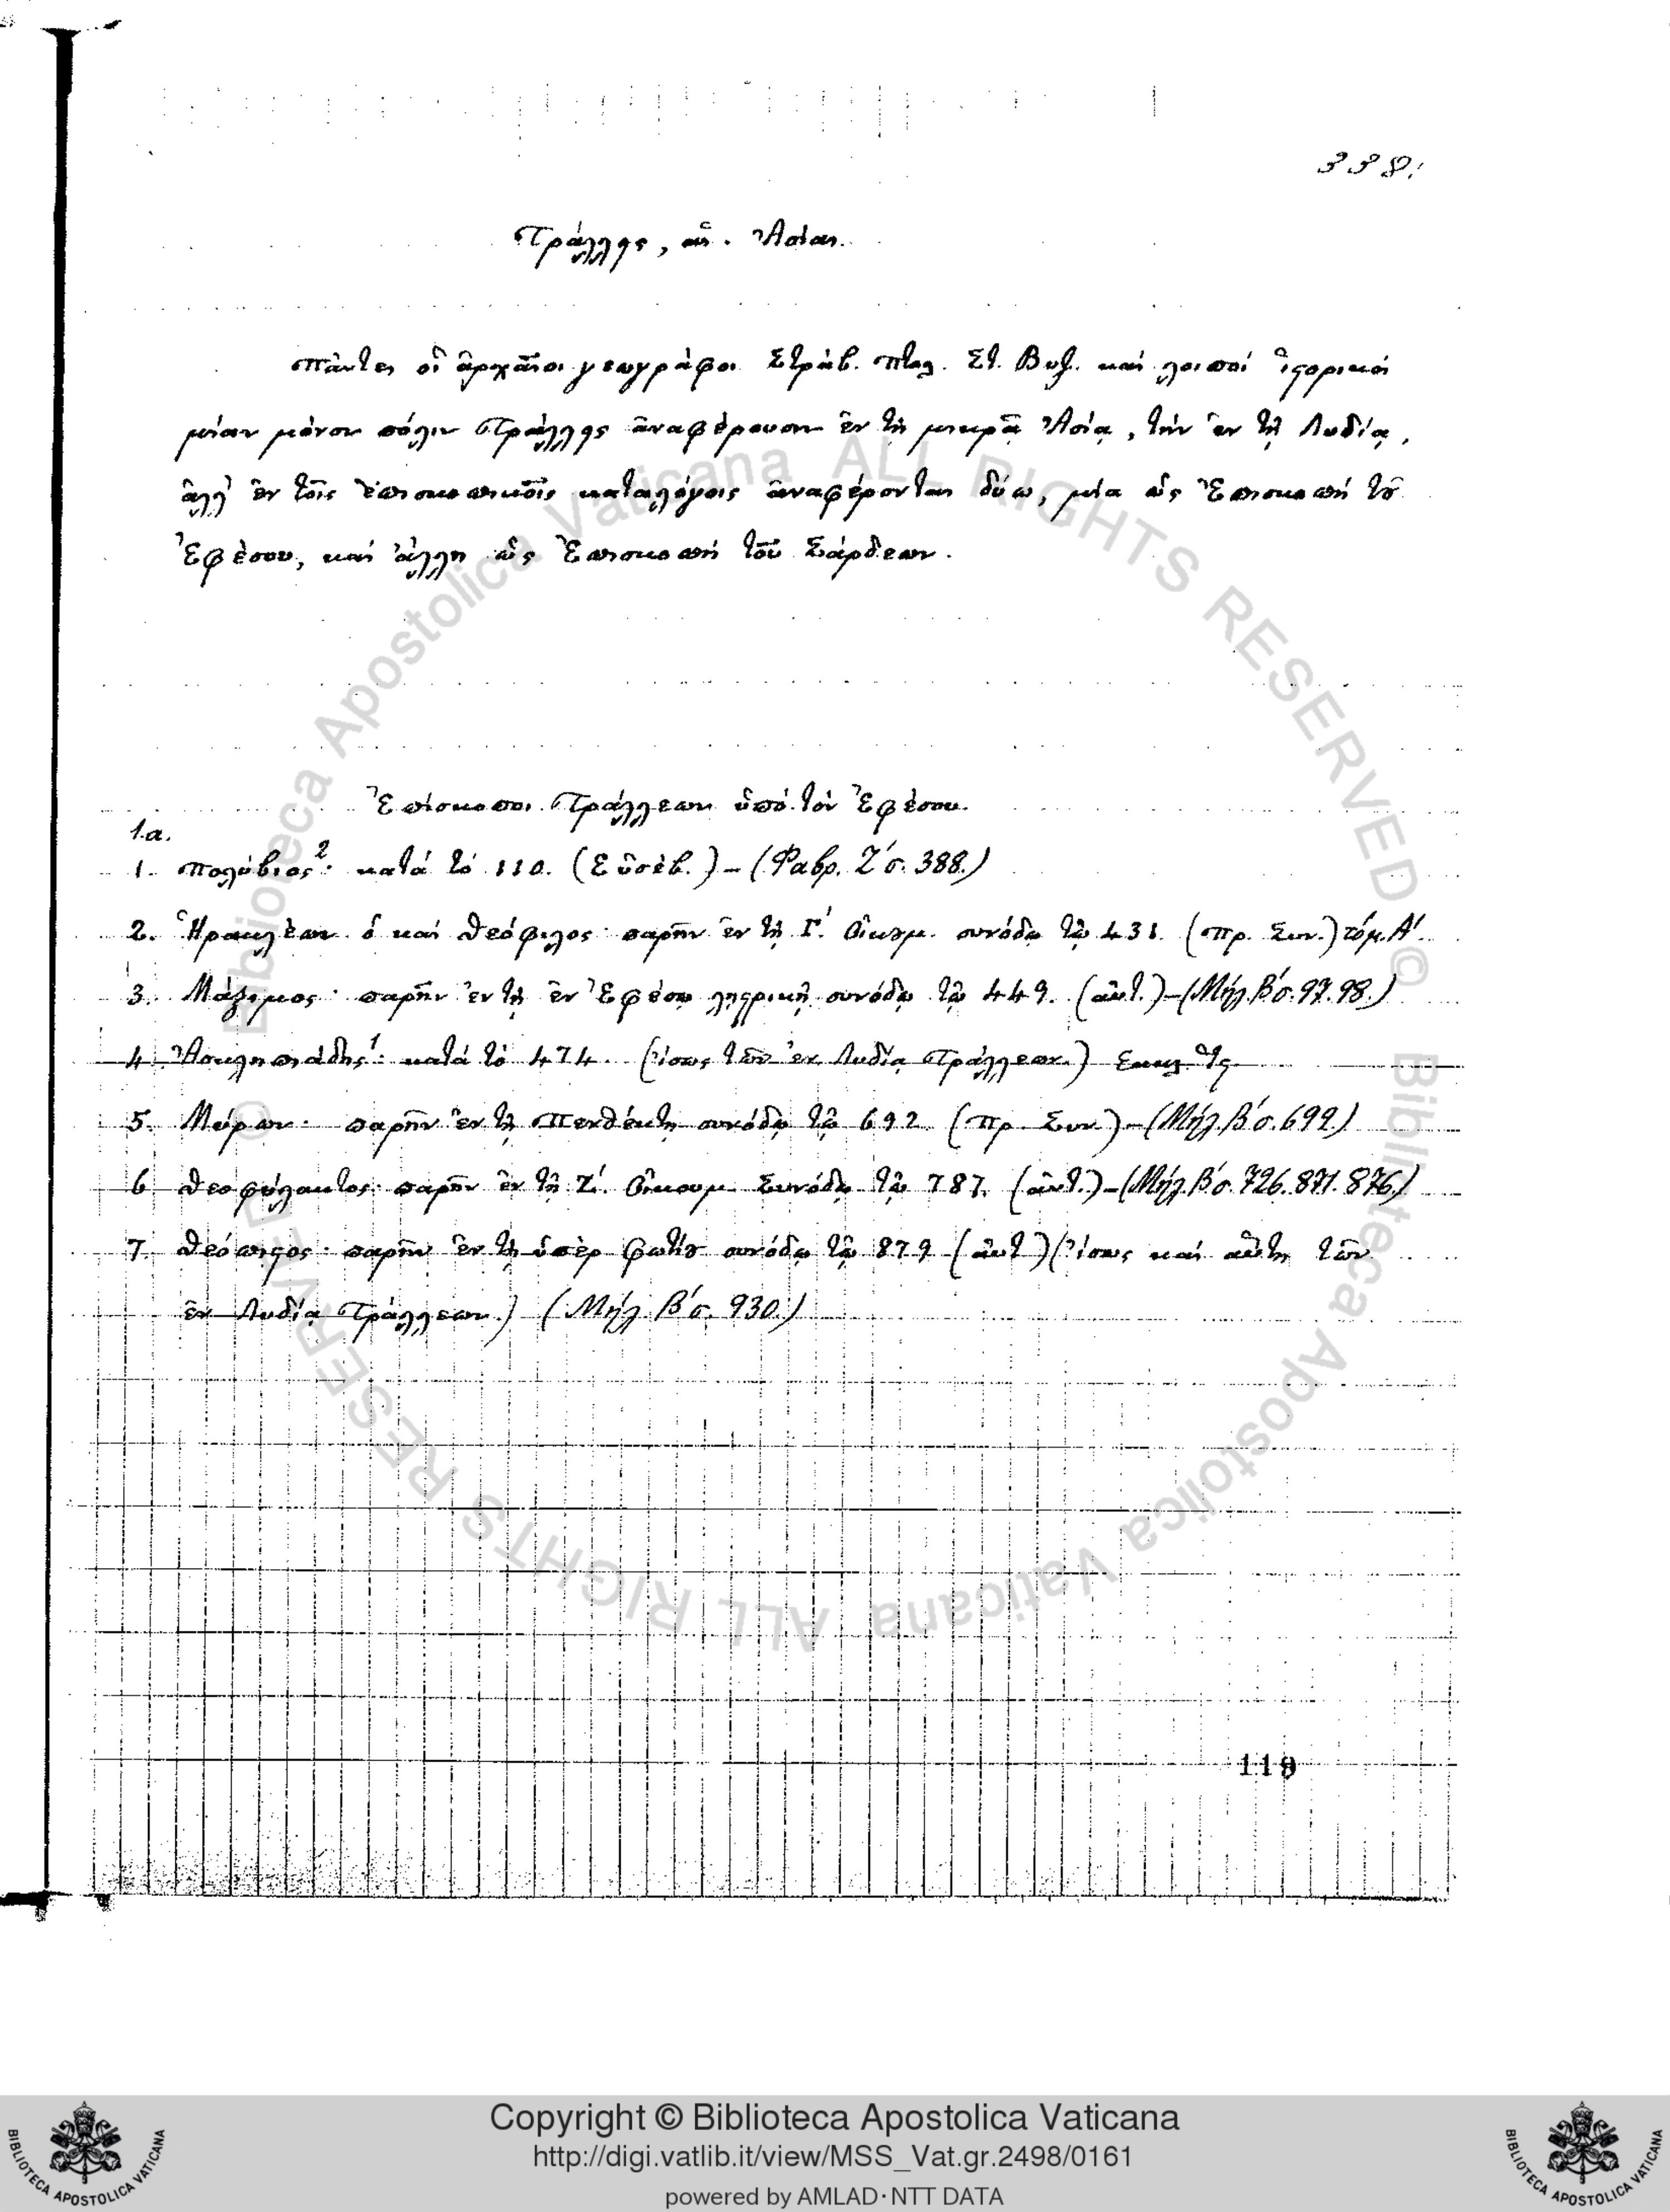 339.
Τράλλης, αἱ. Ἀσίας.
Πάντες οἱ ἀρχαῖοι γεωγράφοι Στράβ. Πτολ. Στ. Βυζ. καὶ λοιποί ἱστορικοί
μίαν μόνον πόλιν Τράλλης ἀναφέρουσιν ἐν τῇ μικρᾷ Ἀσίᾳ, τὴν ἐν τῇ Λυδίᾳ,
ἀλλ' ἐν τοῖς ἐπισκοπικοῖς καταλόγοις ἀναφέρονται δύω, μία ὡς Ἐπισκοπή τοῦ
Ἐφέσου, καὶ ἄλλη ὡς Ἐπισκοπή τοῦ Σάρδεων.
Ἐπίσκοποι Τράλλεων ὑπό τὸν Ἐφέσου.
1.α.
1. Πολύβιος²· κατά τό 110. (Εὐσέβ.) – (Φαβρ. Ζ΄ σ. 388.)
2. Ἡρακλέων ὁ καὶ Θεόφιλος· παρῆν ἐν τῇ Γ΄. Οἰκουμ. συνόδῳ τῷ 431. (Πρ. Συν.) τόμ. Α΄.
3. Μάξιμος· παρῆν ἐν τῇ ἐν Ἐφέσῳ λῃστρικῇ συνόδῳ τῷ 449. (αὐτ.) – (Μήλ. Β΄ σ. 97. 98.)
4. Ἀσκληπιάδης¹· κατά τό 474. (ἴσως τῶν ἐκ Λυδίᾳ Τράλλεων.)
5. Μύρων· παρῆν ἐν τῇ Πενθέκτῃ συνόδῳ τῷ 692. (Πρ. Συν.) – (Μήλ. Β΄ σ. 699.)
6. Θεοφύλακτος· παρῆν ἐν τῇ Ζ΄. Οἰκουμ. Συνόδῳ τῷ 787. (αὐτ.) – (Μήλ. Β΄ σ. 726. 871. 876.)
7. Θεόπιστος· παρῆν ἐν τῇ ὑπέρ Φωτίου συνόδῳ τῷ 879 (αὐτ) (ἴσως καὶ αὐτη τῶν
ἐν Λυδίᾳ Τράλλεων.) (Μήλ. Β΄ σ. 930.)
119
Copyright © Biblioteca Apostolica Vaticana
http://digi.vatlib.it/view/MSS_Vat.gr.2498/0161
powered by AMLAD·NTT DATA
BIBLIOTECA APOSTOLICA VATICANA
BIBLIOTECA APOSTOLICA VATICANA
© Biblioteca Apostolica Vaticana ALL RIGHTS RESERVED
© Biblioteca Apostolica Vaticana ALL RIGHTS RESERVED